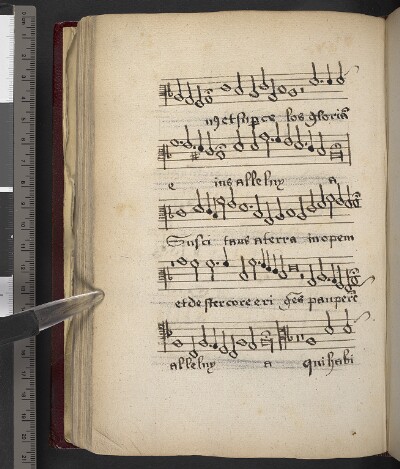 et sup ce los gloria
e ius alleluy a
Susci tans a terra inopem
et de stercore eri ges pauperē
alleluy a qui habi